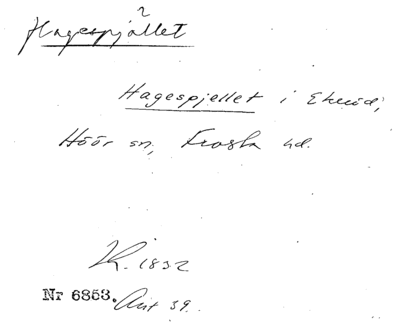 ?
Hagespjället
Hagespjellet i Ekeröd,
Höör sn, Frosta hd.
1832
Nr 6853. Avt 39.